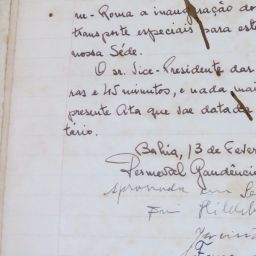 me-Roma a inauguração do
transporte especiais para est
nossa Séde.
O sr. Vice-Presidente das
ras e 45 minutos, e nada mai
presente Ata que sae datada
tário.
Bahia, 13 de Fever
Permeval Gaudêncio
Aprovada em Se
Frei Hildeb